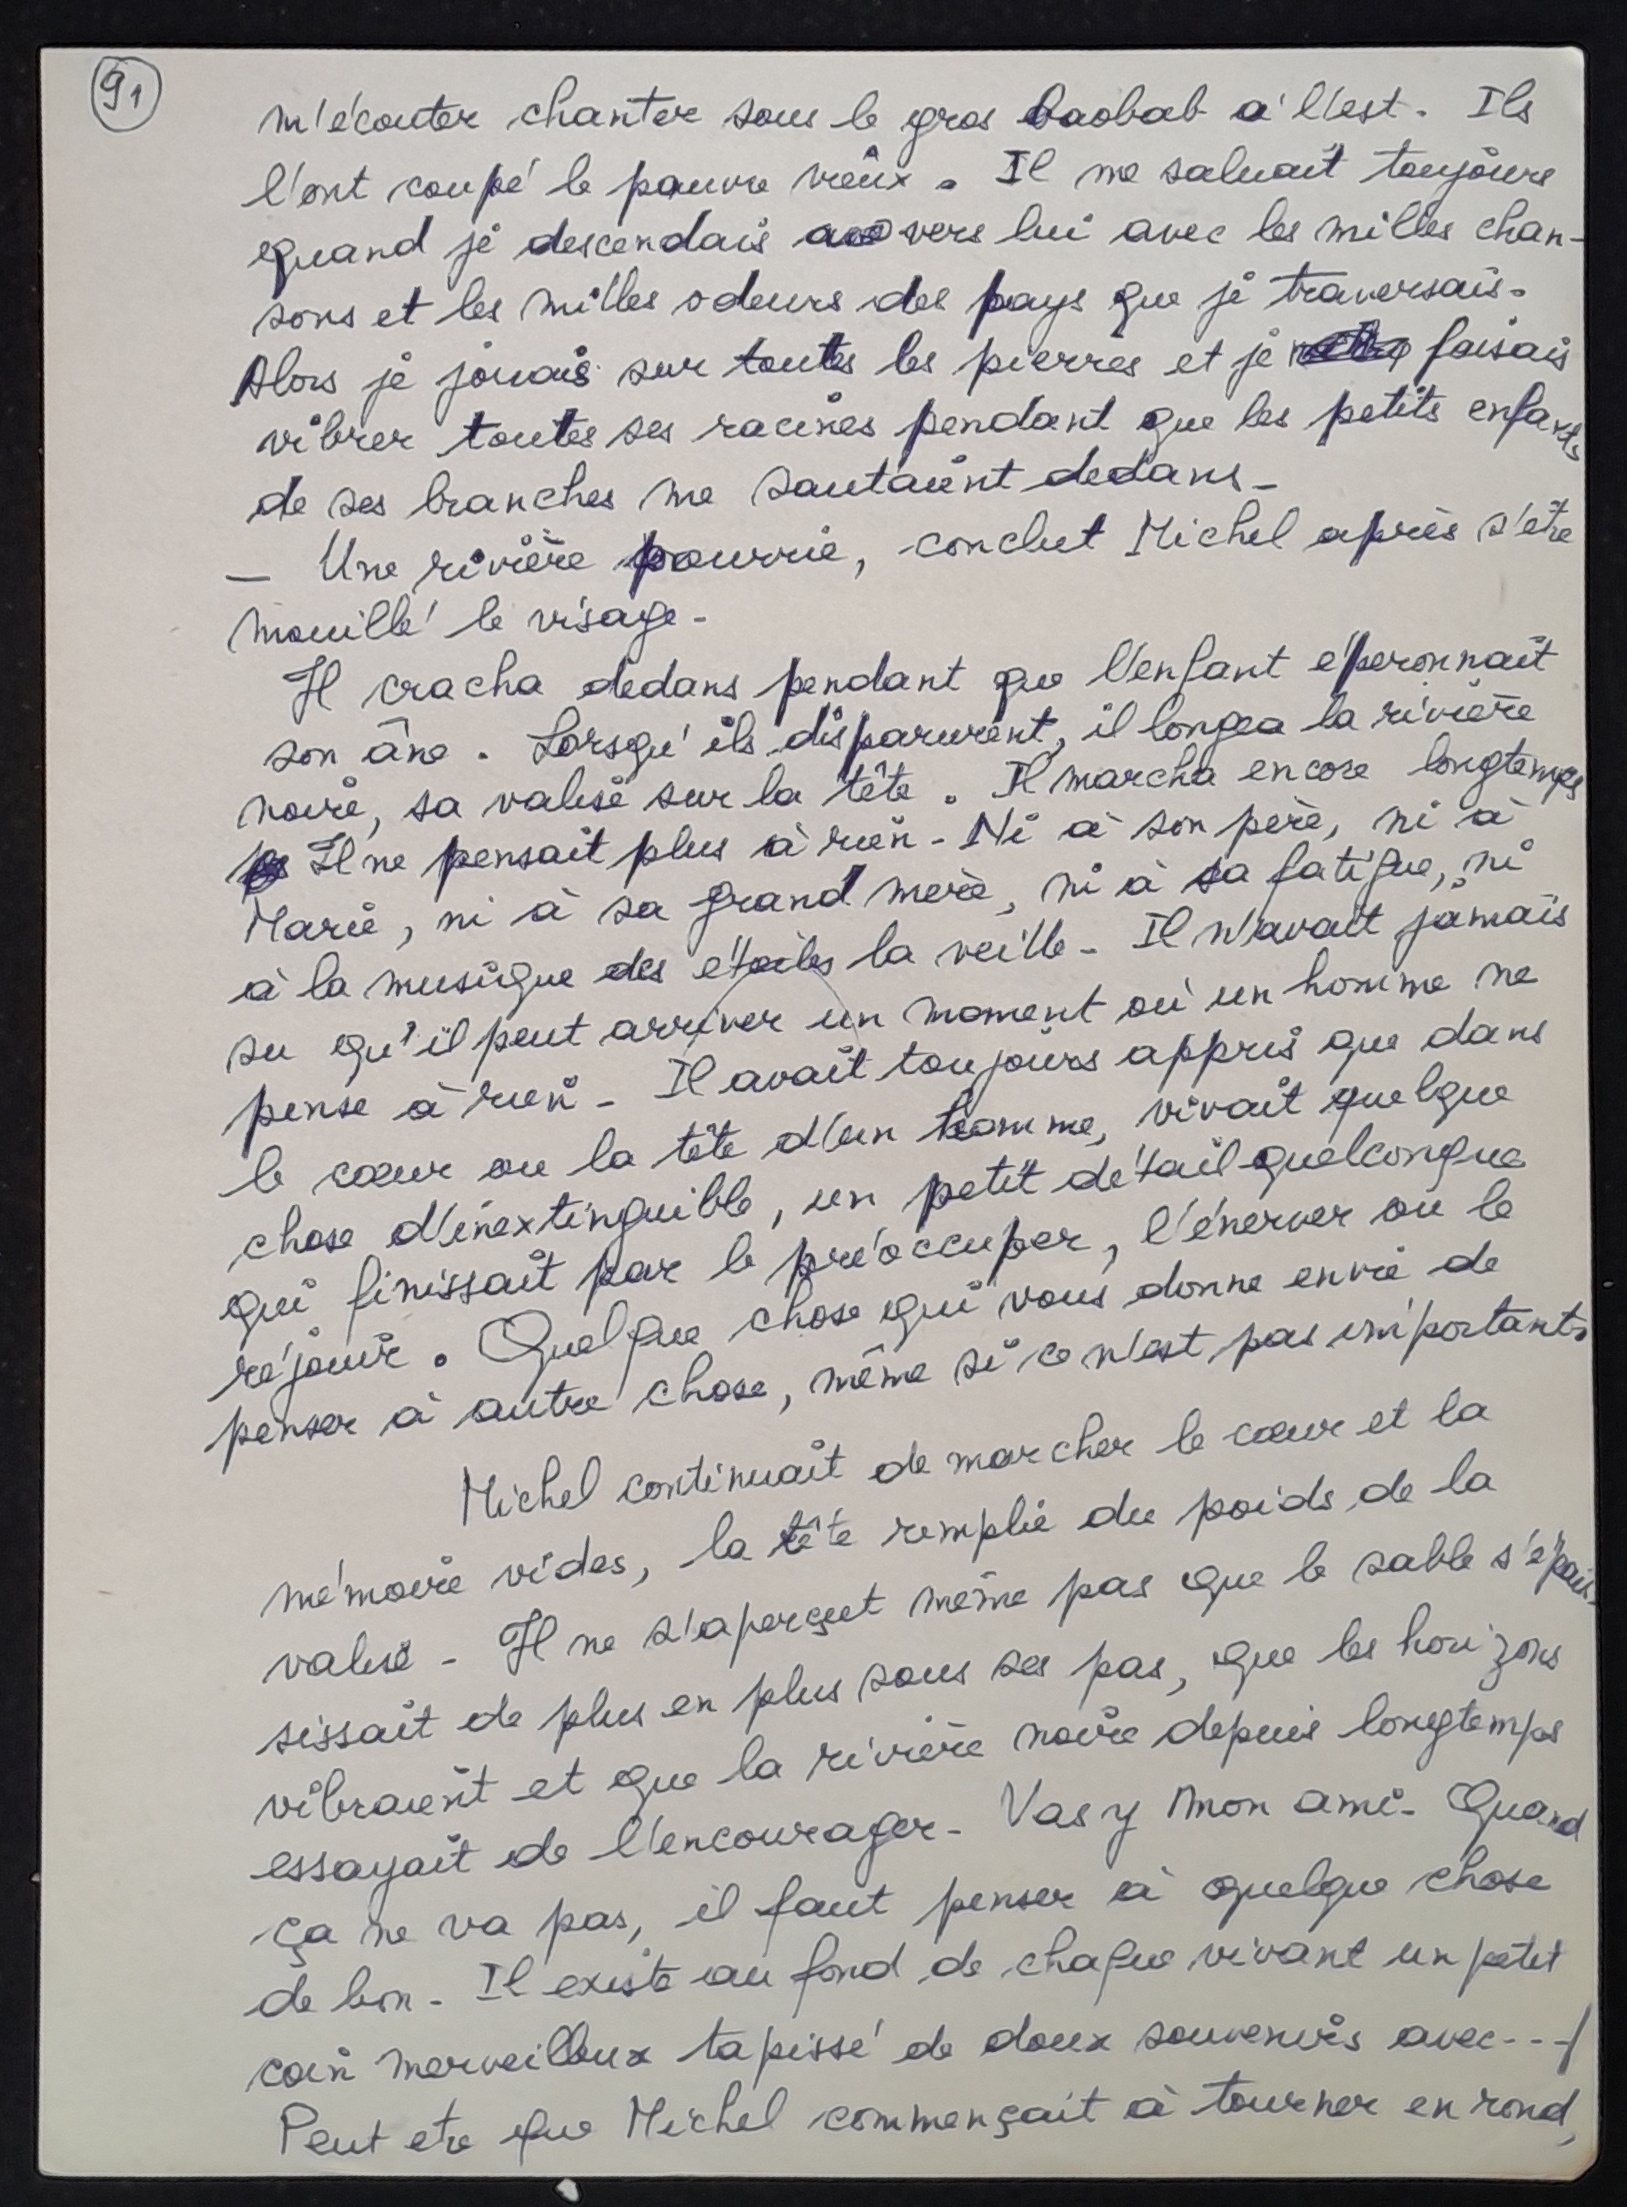 91
m'écouter chanter sous le gros baobab à l'est. Ils
l'ont coupé le pauvre vieux. Il me saluait toujours
quand je descendais vers lui avec les milles chan-
sons et les milles odeurs des pays que je traversais.
Alors je jouais sur toutes les pierres et je faisais
vibrer toutes ses racines pendant que les petits enfants
de ses branches me sautaient dedans -
— Une rivière pourrie, conclut Michel après s'être
mouillé le visage -
Il cracha dedans pendant que l'enfant éperonnait
son âne. Lorsqu'ils disparurent, il longea la rivière
noire, sa valise sur la tête. Il marcha encore longtemps
Il ne pensait plus à rien - Ni à son père, ni à
Marie, ni à sa grand mère, ni à sa fatigue, ni
à la musique des étoiles la veille - Il n'avait jamais
su qu'il peut arriver un moment où un homme ne
pense à rien - Il avait toujours appris que dans
le cœur ou la tête d'un homme, vivait quelque
chose d'inextinguible, un petit détail quelconque
qui finissait par le préoccuper, l'énerver ou le
réjouir. Quelque chose qui vous donne envie de
penser à autre chose, même si ce n'est pas important.
Michel continuait de marcher le cœur et la
mémoire vides, la tête remplie du poids de la
valise - Il ne s'aperçut même pas que le sable s'épais-
sissait de plus en plus sous ses pas, que les horizons
vibraient et que la rivière noire depuis longtemps
essayait de l'encourager - Vas y mon ami - Quand
ça ne va pas, il faut penser à quelque chose
de bon - Il existe au fond de chaque vivant un petit
coin merveilleux tapissé de doux souvenirs avec---/
Peut etre que Michel commençait à tourner en rond,